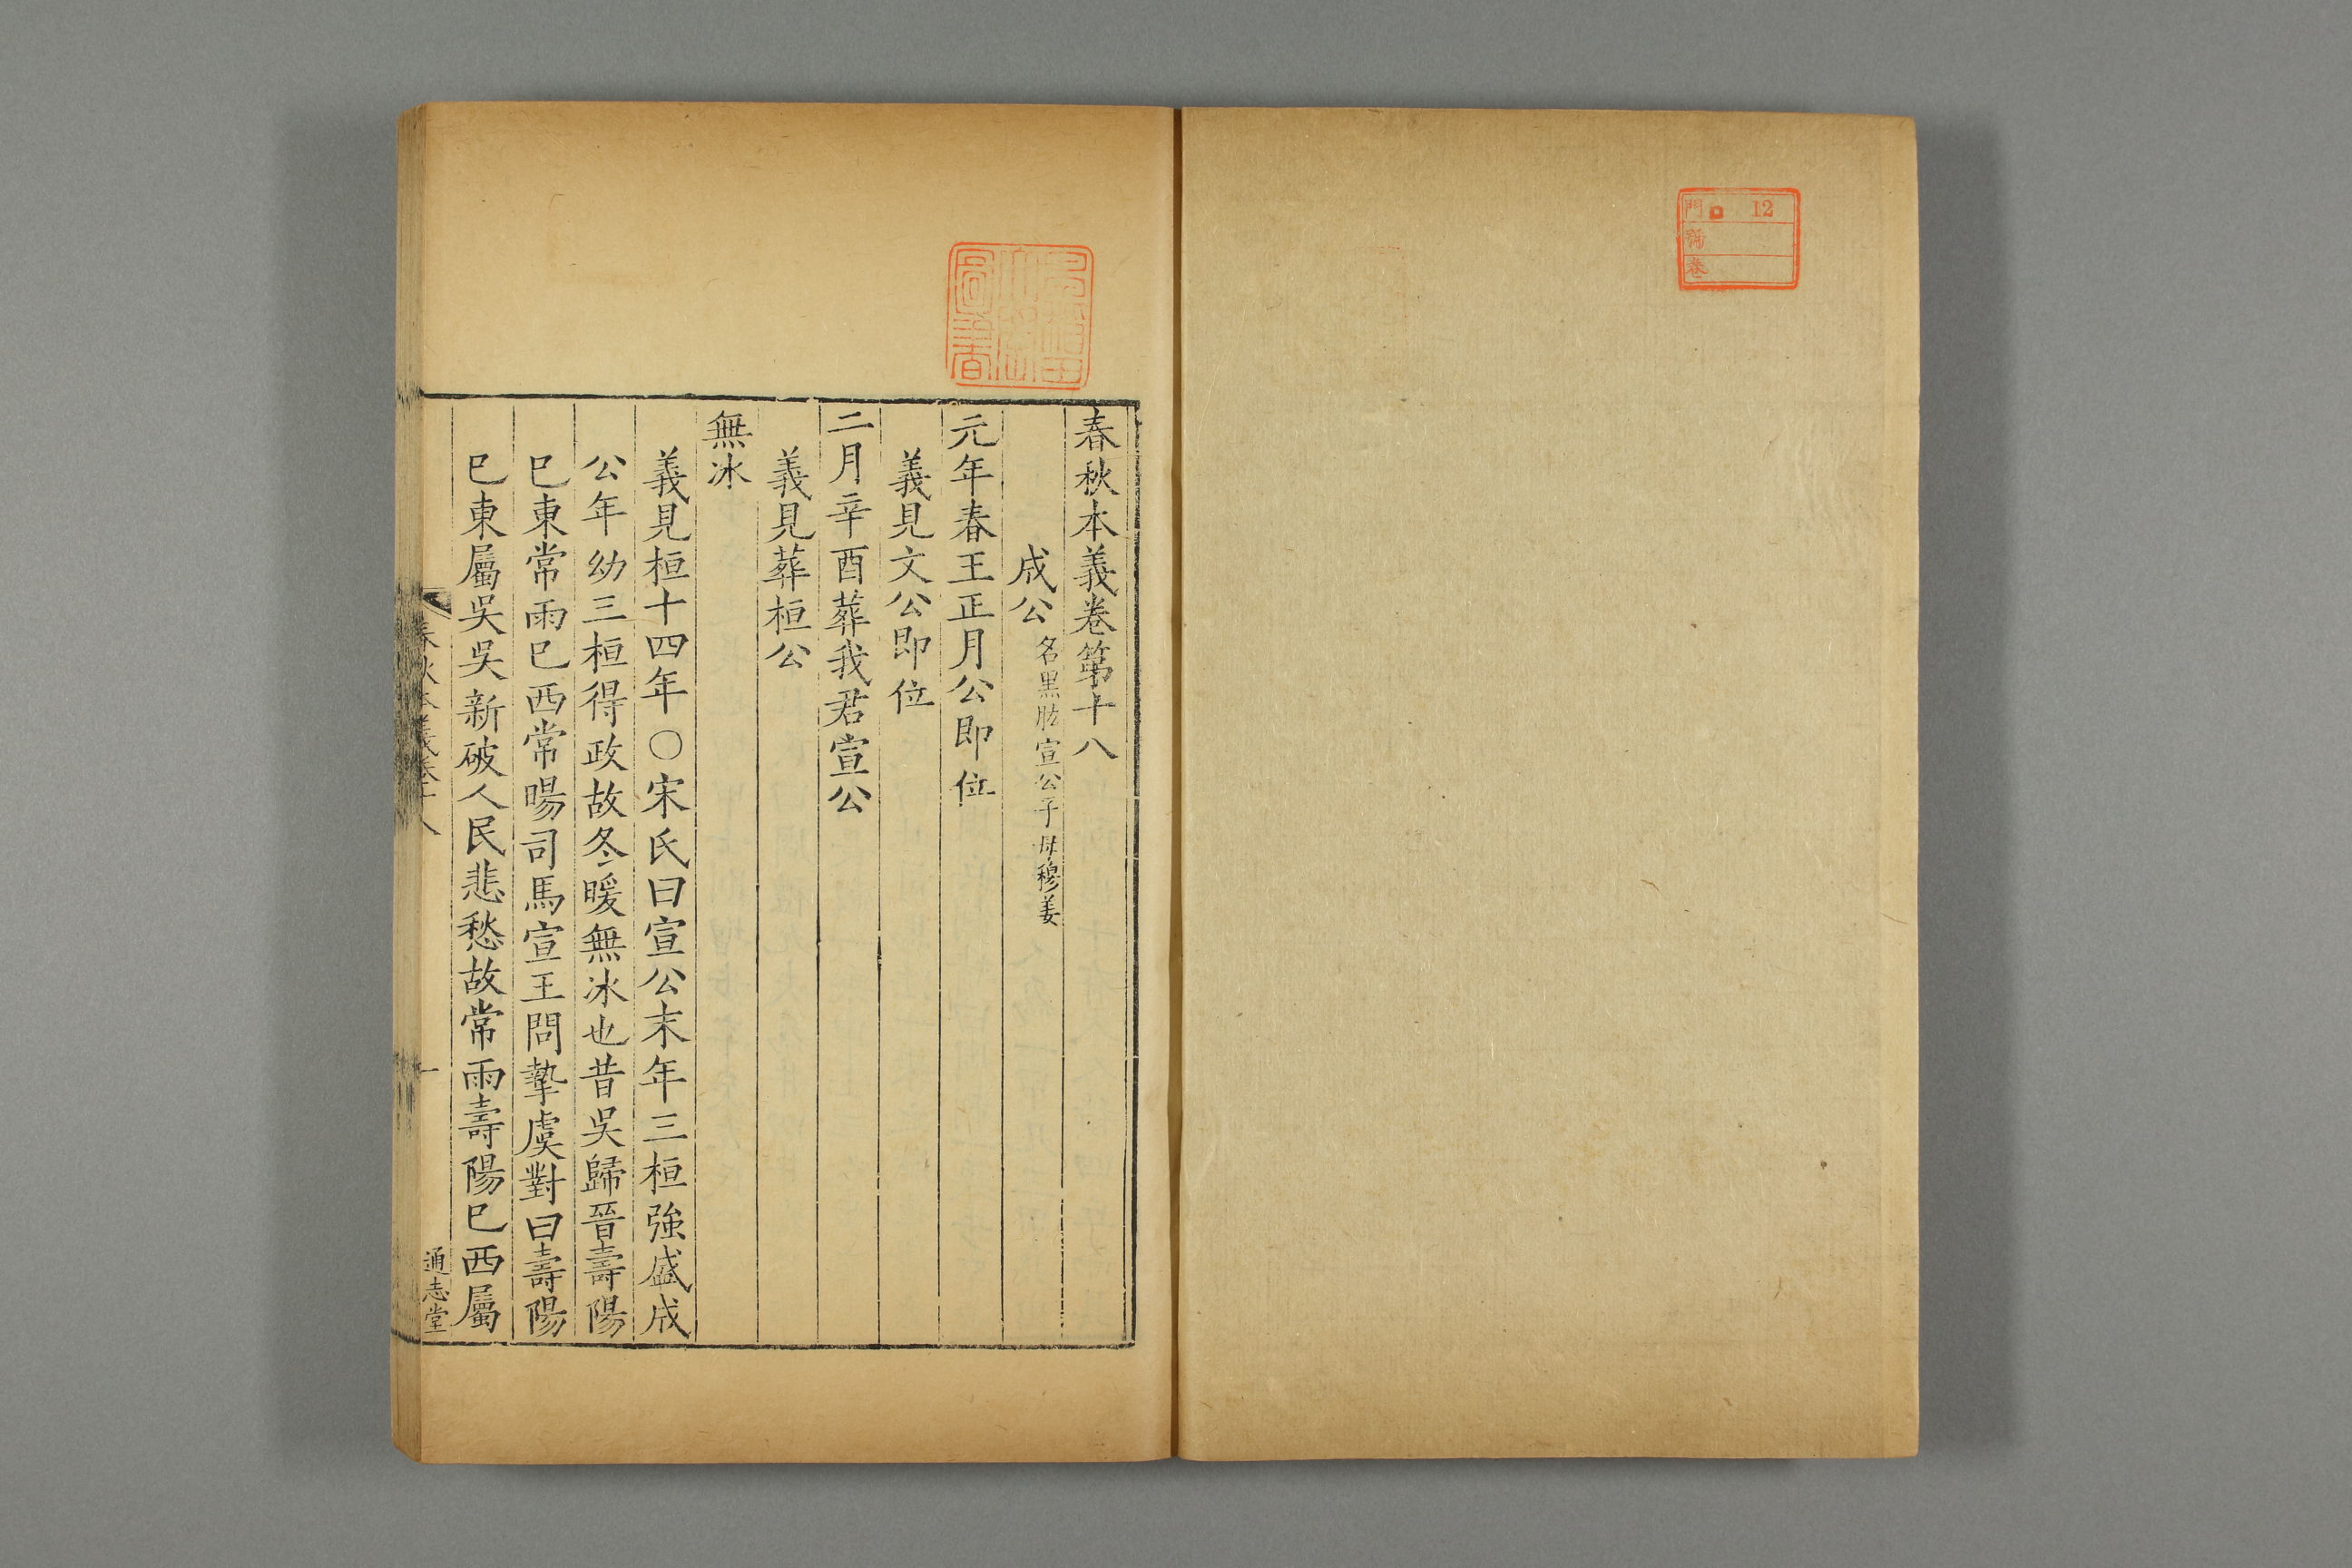 門 12
號
卷
春秋本義卷第十八
成公 名黑肱宣公子母穆姜
元年春王正月公即位
義見文公即位
二月辛酉葬我君宣公
義見葬桓公
無冰
義見桓十四年○宋氏曰宣公末年三桓強盛成
公年幼三桓得政故冬暖無冰也昔吳歸晉壽陽
巳東常雨巳西常暘司馬宣王問摯虞對曰壽陽
巳東屬吳吳新破人民悲愁故常雨壽陽巳西屬
春秋本義卷十八
一
通志堂